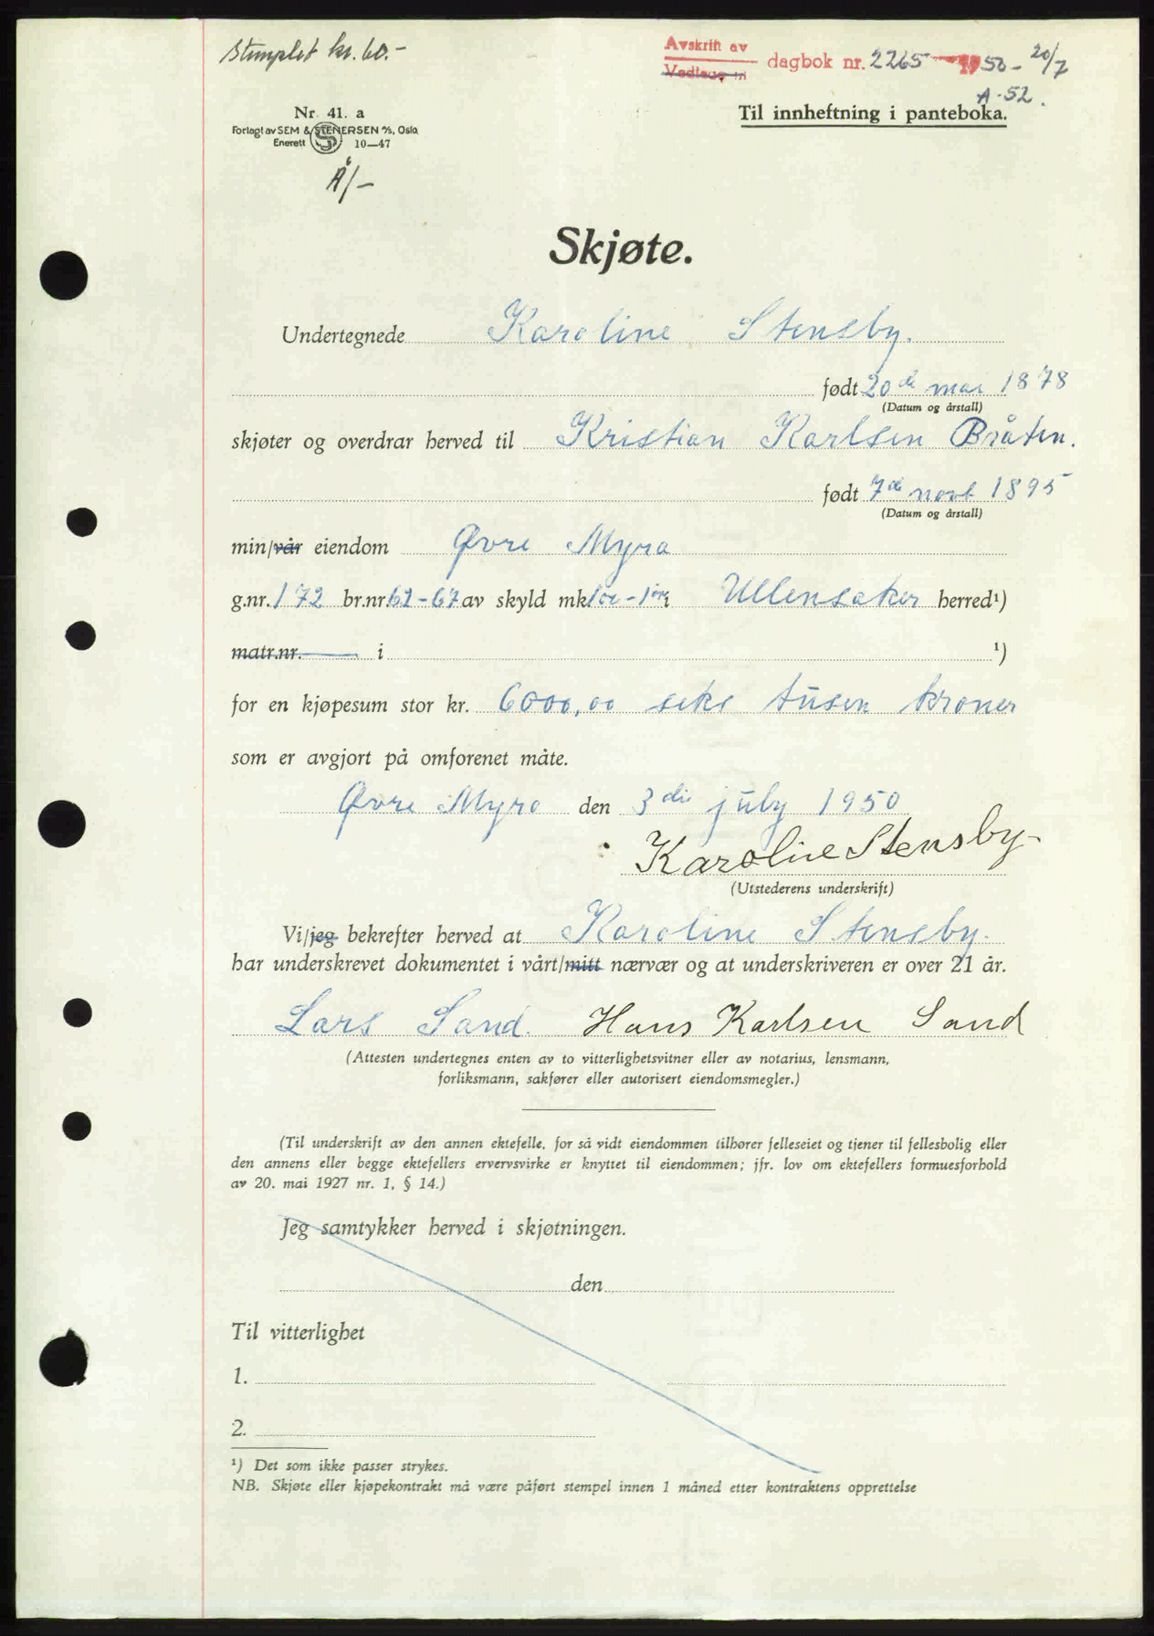 Stemplet kr. 60.-
Avskrift av
Vedlegg til
dagbok nr. 2265 1950 - 20/7
A-52.
Til innheftning i panteboka.
Nr. 41. a
Forlagt av SEM & STENERSEN A/S, Oslo
Enerett S 10—47
Skjøte.
Undertegnede Karoline Stensby.
født 20de mai 1878
(Datum og årstall)
skjøter og overdrar herved til Kristian Karlsen Bråten.
født 7de novb 1895
(Datum og årstall)
min/vår eiendom Øvre Myra
g.nr. 172 br.nr. 62-67 av skyld mk. 1øre-1øre i Ullensaker herred¹)
matr.nr. i ¹)
for en kjøpesum stor kr. 6000,00 seks tusen kroner
som er avgjort på omforenet måte.
Øvre Myra den 3die july 1950
Karoline Stensby
(Utstederens underskrift)
Vi/jeg bekrefter herved at Karoline Stensby.
har underskrevet dokumentet i vårt/mitt nærvær og at underskriveren er over 21 år.
Lars Sand. Hans Karlsen Sand
(Attesten undertegnes enten av to vitterlighetsvitner eller av notarius, lensmann,
forliksmann, sakfører eller autorisert eiendomsmegler.)
(Til underskrift av den annen ektefelle, for så vidt eiendommen tilhører felleseiet og tjener til fellesbolig eller
den annens eller begge ektefellers ervervsvirke er knyttet til eiendommen; jfr. lov om ektefellers formuesforhold
av 20. mai 1927 nr. 1, § 14.)
Jeg samtykker herved i skjøtningen.
den
Til vitterlighet
1.
2.
¹) Det som ikke passer strykes.
NB. Skjøte eller kjøpekontrakt må være påført stempel innen 1 måned etter kontraktens opprettelse